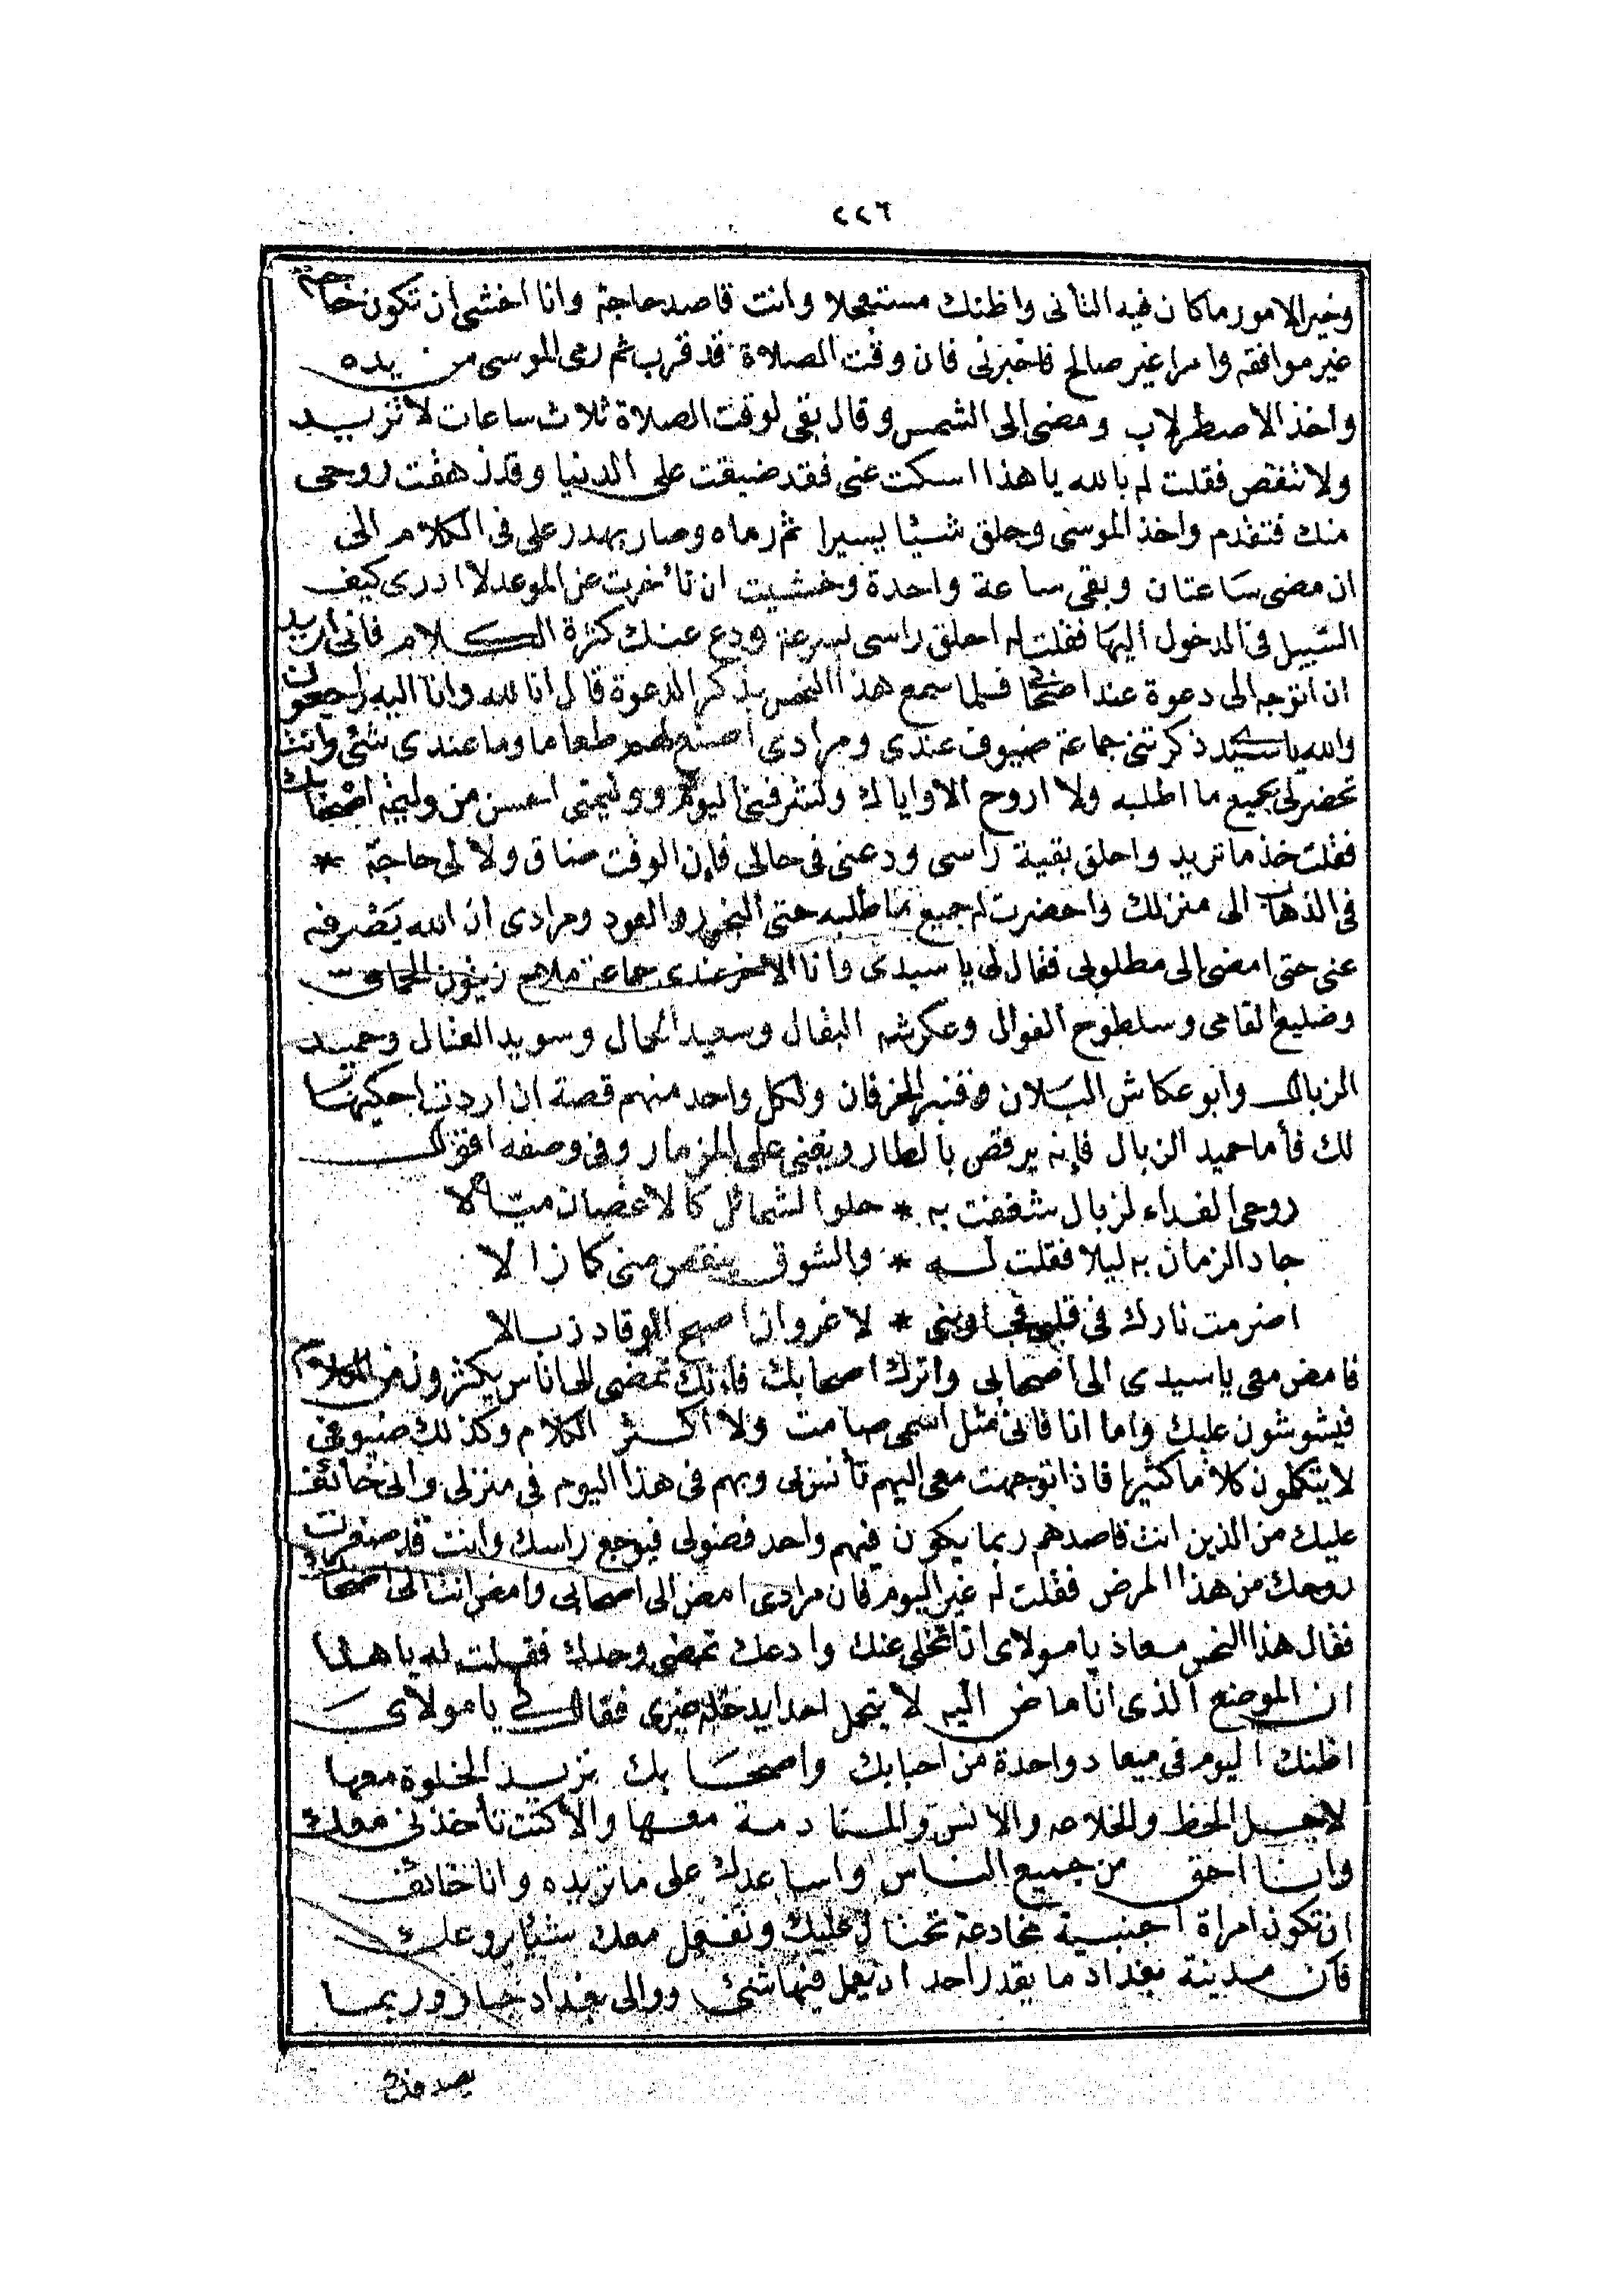 ٢٢٦
وخير الامور ما كان فيه التأنى واظنك مستعجلا وانت قاصد حاجة وانا اخشى ان تكون حاجة
غير موافقه وامرا غير صالح فاخبرنى فان وقت الصلاة قد قرب ثم رمى الموسى من يده
واخذ الاصطرلاب ومضى الى الشمس وقال بقى لوقت الصلاة ثلاث ساعات لا تزيد
ولا تنقص فقلت له بالله يا هذا اسكت عنى فقد ضيقت على الدنيا وقد زهقت روحى
منك فتقدم واخذ الموسى وحلق شيئا يسيرا ثم رماه وصار يهدر على فى الكلام الى
ان مضى ساعتان وبقى ساعة واحدة وخشيت ان تاخرت عن الموعد لا ادرى كيف
السبيل فى الدخول اليها فقلت له احلق راسى بسرعة ودع عنك كثرة الكلام فانى اريد
ان اتوجه الى دعوة عند اصحابى فلما سمع هذا النحس بذكر الدعوة قال انا لله وانا اليه راجعون
والله يا سيد ذكرتنى جماعة ضيوف عندى ومرادى اصنع لهم طعاما وما عندى شئ وانت
تحضر لى بجميع ما اطلبه ولا اروح الا واياك ولتشرفنى اليوم ووليمتى احسن من وليمة اصحابك
فقلت خذ ما تريد واحلق بقية راسى ودعنى فى حالى فإن الوقت ضاق ولا لى حاجة *
فى الذهاب الى منزلك واحضرت له جميع ما طلبه حتى البخور والعود ومرادى ان الله يصرفه
عنى حتى امضى الى مطلوبى فقال لى يا سيدى وانا الاخر عندى جماعة ملاح زيتون الحمامى
وضليع القامى وسلطوح الفوال وعكرشه البقال وسعيد الجمال وسويد العتال وحميد
الزبال وابو عكاش البلان وقنبر الخرفان ولكل واحد منهم قصة ان اردت احكيها
لك فأما حميد الزبال فإنه يرقص بالطار ويغنى على المزمار وفى وصفه اقول
روحى الفداء لزبال شغفت به * حلو الشمائل كالاغصان ميالا
جاد الزمان به ليلا فقلت له * والشوق ينقص منى كما زالا
اضرمت نارك فى قلبى فجاوبنى * لا غرو ان اصبح الوقاد زبالا
فامض معى يا سيدى الى اصحابى واترك اصحابك فانك تمضى الى اناس يكثرون من الكلام
فيشوشون عليك واما انا فانى مثل اسمى صامت ولا اكثر الكلام وكذلك ضيوفى
لا يتكلمون كلاما كثيرا فاذا توجهت معى اليهم تأنس لى وبهم فى هذا اليوم فى منزلى وانى خائف
عليك من الذين انت قاصدهم ربما يكون فيهم واحد فضولى فيوجع راسك وانت قد صغرت
روحك من هذا المرض فقلت له غير اليوم فان مرادى امض الى اصحابى وامض انت الى اصحابك
فقال هذا النحس معاذ يا مولاى ان اتخلى عنك وادعك تمضى وحدك فقلت له يا هذا
ان الموضع الذى انا ماض اليه لا يتحمل احدا يدخله غيرى فقال لى يا مولاى
اظنك اليوم فى ميعاد واحدة من احبابك واصحابك تريد الخلوة معها
لاجل الحظ والخلاعه والانس والمنادمة معها والا كنت تأخذنى معك
وانا احق من جميع الناس واساعدك على ما تريده وانا خائف
ان تكون امراة اجنبية مخادعة تحتال عليك وتفعل معك شيئا يروعك
فان مدينة بغداد ما يقدر احد ان يعمل فيها شئ ووالى بغداد جبار وربما